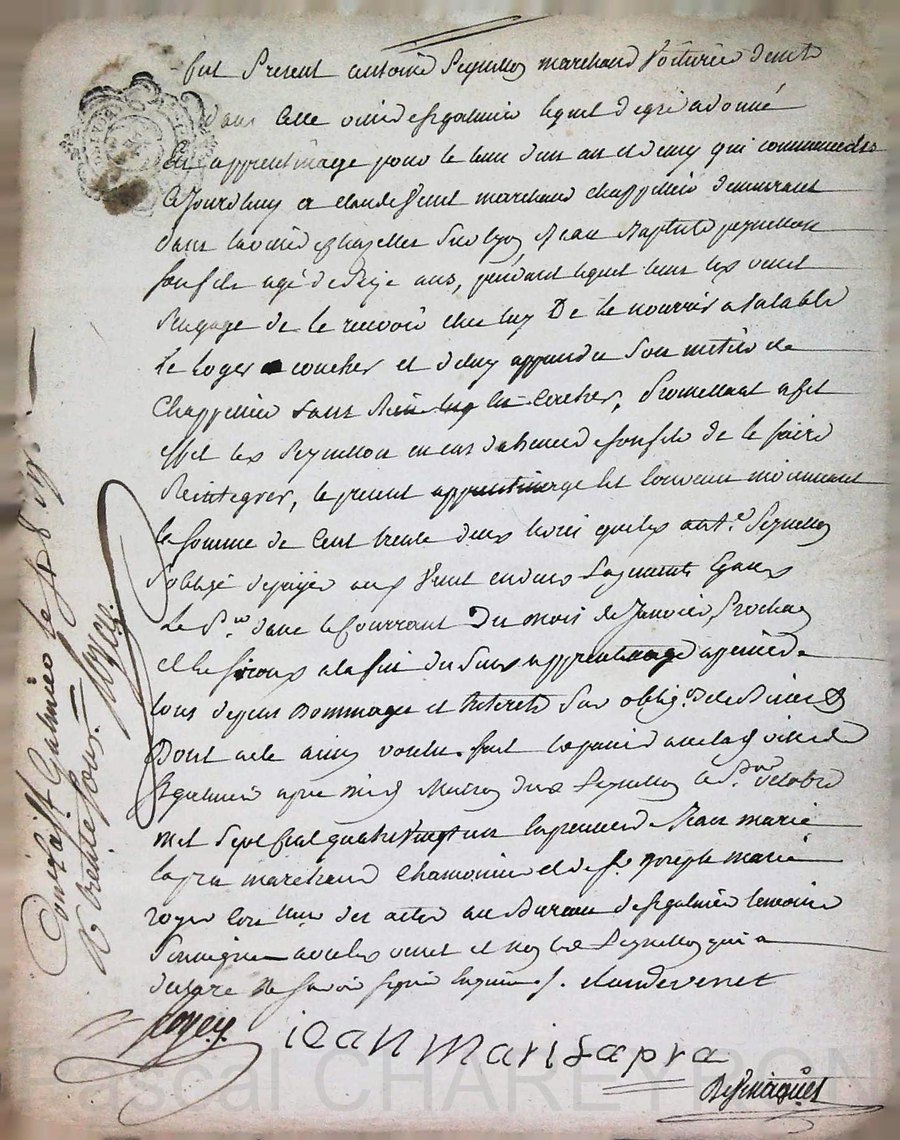 fut Present antoine Peyrellon marchand Voiturier demt
dans cette ville de st galmier lequel de gré a donné
en apprentissage pour le tems d'un an et demy qui commencera
ce Jourdhuy a claude Venet marchand chappellier demeurant
dans la ville de chazelles sur lyon Jean Baptiste peyrellon
son fils agé de seize ans, pendant lequel tems led. venet
s'engage de le recevoir chez luy De le nourrir a sa table
le loger coucher et deluy apprendre son metier de
Chappellier sans Rien luy en cacher, Promettant a cet
effet led. Peyrellon en cas d'absence de son fils de le faire
Reintegrer, le present apprentissage est convenu moiennant
la somme de Cent trente deux livres que led. ant.e Peyrellon
s'oblige de payer aud. Venet en deux payements Egaux
Le P.er dans le Courrant Du mois de Janvier Prochain
et le second a la fin dud. apprentissage a peine de
tous depens Dommages et Interets
Dont acte ainsy voulu. fait et passé aud. ville de
St galmier apres midy Maison dud. Peyrellon le P.er octobre
mil sept cent quatre vingt un En presence de Jean marie
lapra marchand Chamoisier et de Sr. Joseph marie
royer des actes au Bureau de St galmier temoins
Soussignes avec led. venet et non led. Peyrellon qui a
declaré ne savoir signer Enquis. claude venet
royer
iean Mari Lapra
Con.lé a St Galmier le 4 8bre 1781.
R. trente sous. Royer.